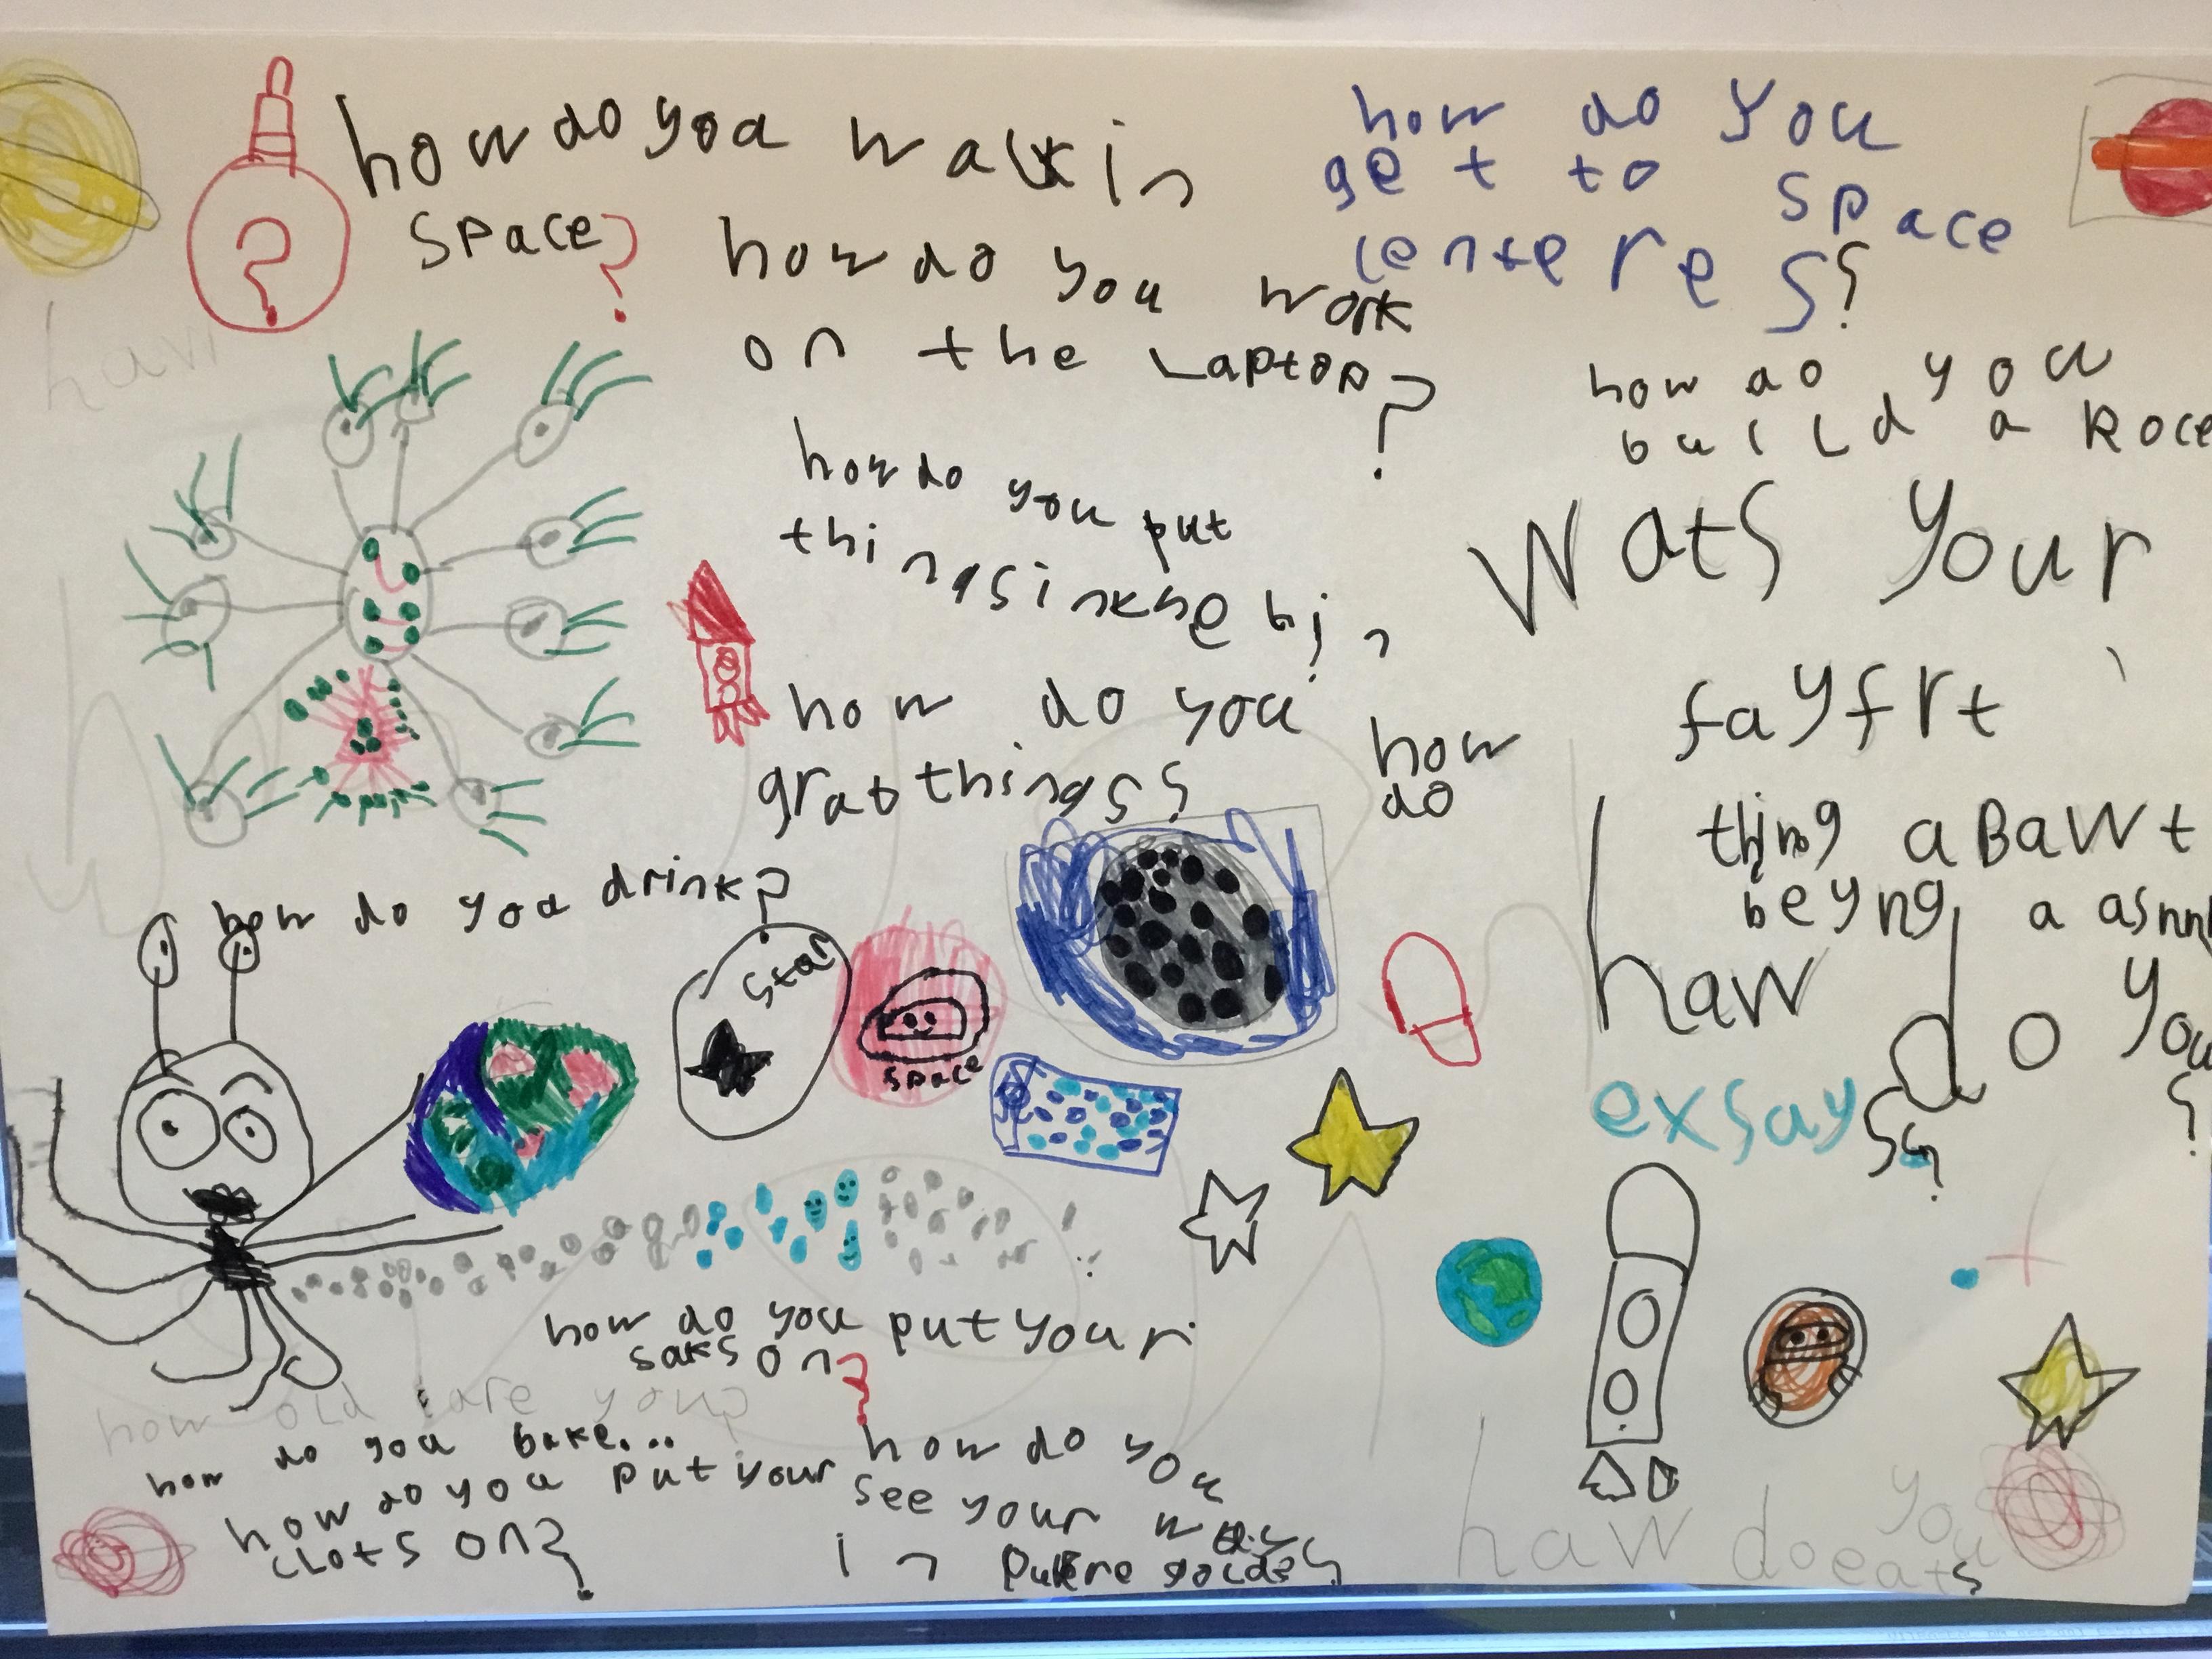 how do you walk in
space?
how do you
get to space
centeres?
?
haw
how do you work
on the Laptop?
how do you
build a Roce
how do you put
things in
Wats your
fayfrt
thing aBawt
beyng a
how do you
grab things?
how
do
how do you drink?
haw do you
exsaysa?
star
space
how do you put your
saks on?
how old are you?
how do you bake...
how do you put your
clots on?
how do you
see your
in
haw do you
eat?